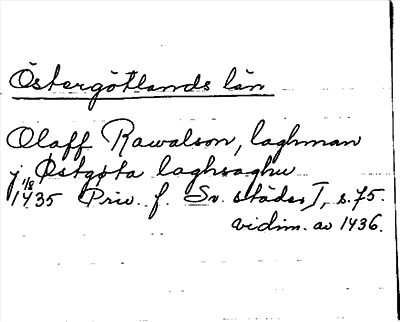 Östergötlands län
Olaff Rawalson, laghman
j Østgøta laghsaghu
1/8 1435 Priv. f. Sv. städer I, s. 75.
vidim. av 1436.